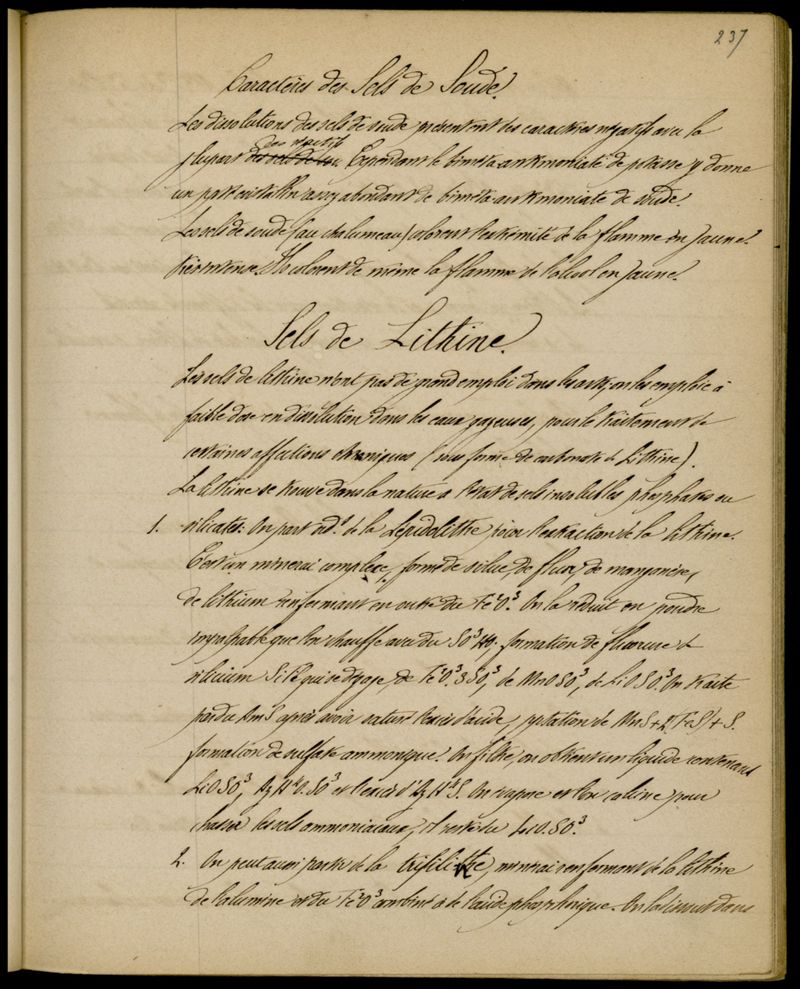 237
Caractères des Sels de Soude.
Les dissolutions des sels de soude présentent des caractères négatifs avec la
plupart des réactifs. Cependant le biméta-antimoniate de potasse y donne
un pté cristallin assez abondant de biméta-antimoniate de soude
Les sels de soude (au chalumeau) colorent l'extrémité de la flamme en jaune
très intense. Ils colorent de même la flamme de l'alcool en jaune.
Sels de Lithine.
Les sels de lithine n'ont pas de grand emploi dans les arts, on les emploie à
faible dose en dissolution dans les eaux gazeuses, pour le traitement de
certaines affections chroniques (sous forme de carbonate de Lithine).
La lithine se trouve dans la nature à l'état de sels insolubles phosphates ou
1. silicates. On part ord.t de la Lépidolithe pour l'extraction de la lithine.
C'est un minerai complexe, formé de silice, de fluor, de manganèse,
de lithium renfermant en outre du Fe²O³. On la réduit en poudre
impalpable que l'on chauffe avec du SO³HO. formation de fluorure de
silicium qui se dégage, de Fe²O³ 3SO³, de MnO SO³, de LiO SO³. On traite
par du AmS après avoir saturé l'excès d'acide, pptation de MnS + 2FeS + S.
formation de sulfate ammonique. On filtre, on obtient un liquide contenant
LiO SO³, AzH⁴O.SO³ et l'excès d'AzH⁴S. On évapore et l'on calcine pour
chasser les sels ammoniacaux, il reste du LiO.SO³.
2. On peut aussi partir de la trifilithe, minerai renfermant de la lithine
de l'alumine et du Fe²O³ combiné à de l'acide phosphorique. On la dissout dans